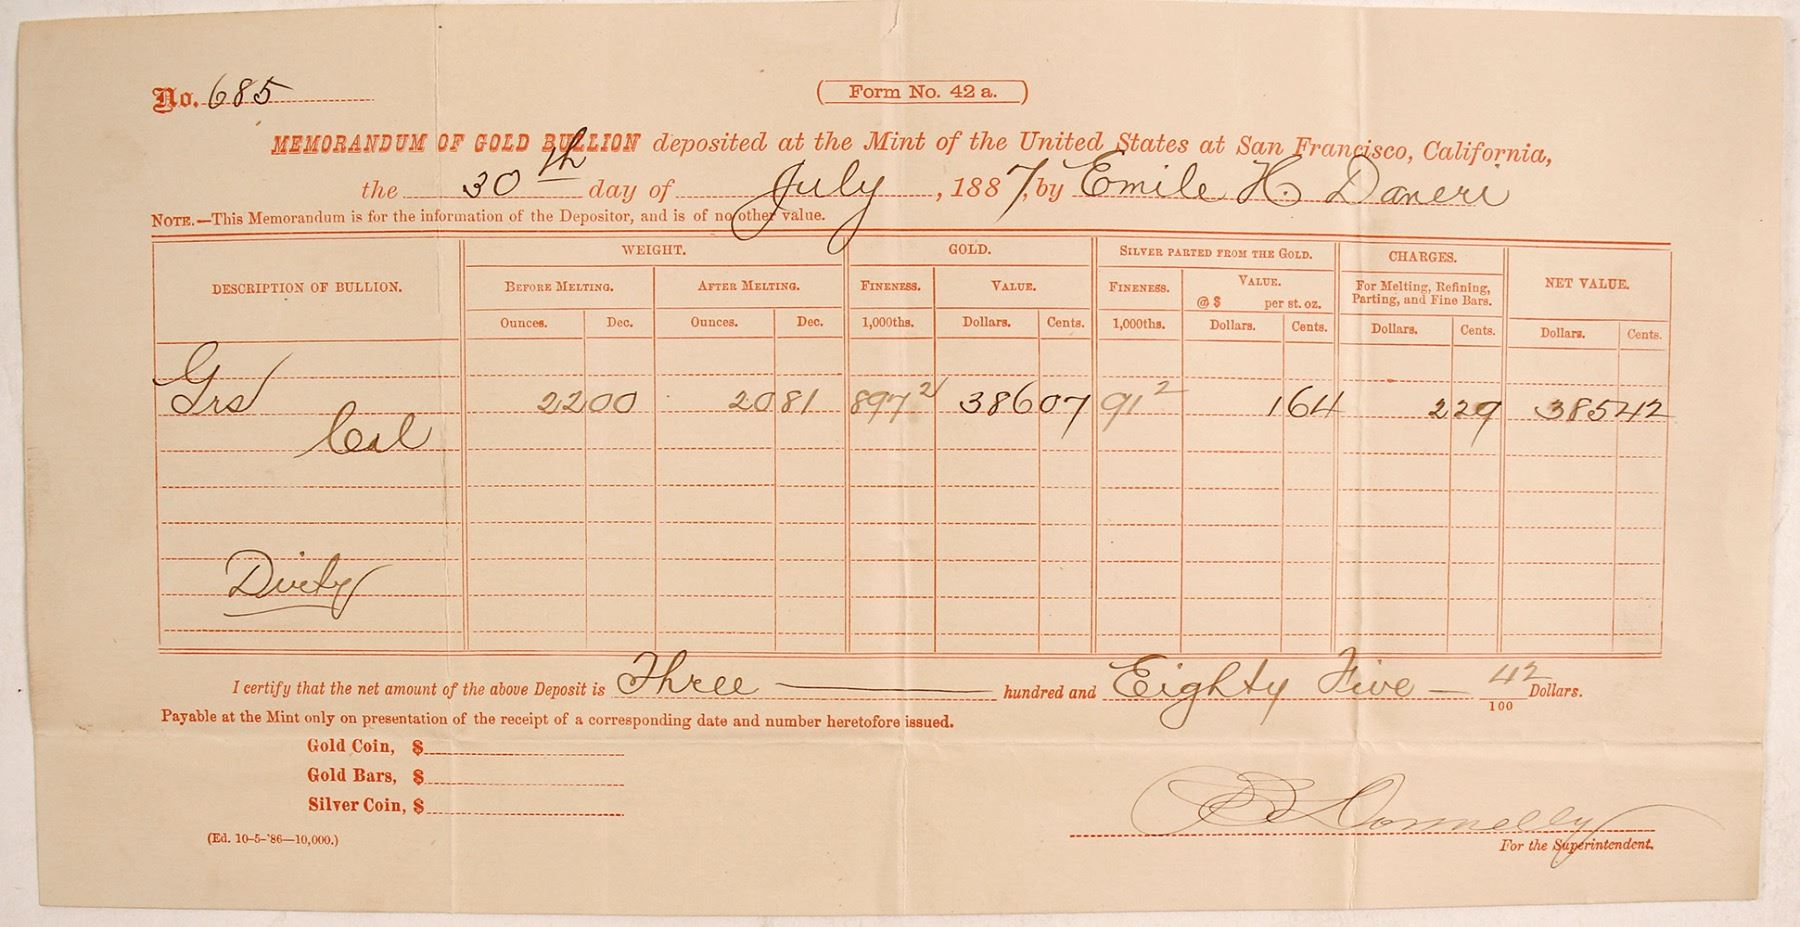 No. 685
(Form No. 42 a.)
MEMORANDUM OF GOLD BULLION deposited at the Mint of the United States at San Francisco, California,
the 30th day of July, 1887, by Emile H. Daneri
NOTE.—This Memorandum is for the information of the Depositor, and is of no other value.
WEIGHT. GOLD. SILVER PARTED FROM THE GOLD. CHARGES. NET VALUE.
DESCRIPTION OF BULLION. BEFORE MELTING. AFTER MELTING. FINENESS. VALUE. FINENESS. VALUE. @ $ per st. oz. For Melting, Refining, Parting, and Fine Bars.
Ounces. Dec. Ounces. Dec. 1,000ths. Dollars. Cents. 1,000ths. Dollars. Cents. Dollars. Cents. Dollars. Cents.
Grs 22 00 20 81 897 2 386 07 91 2 1 64 2 29 385 42
Cal
Dirty
I certify that the net amount of the above Deposit is Three hundred and Eighty Five — 42/100 Dollars.
Payable at the Mint only on presentation of the receipt of a corresponding date and number heretofore issued.
Gold Coin, $
Gold Bars, $
Silver Coin, $
Donnelly
For the Superintendent.
(Ed. 10-5-'86—10,000.)